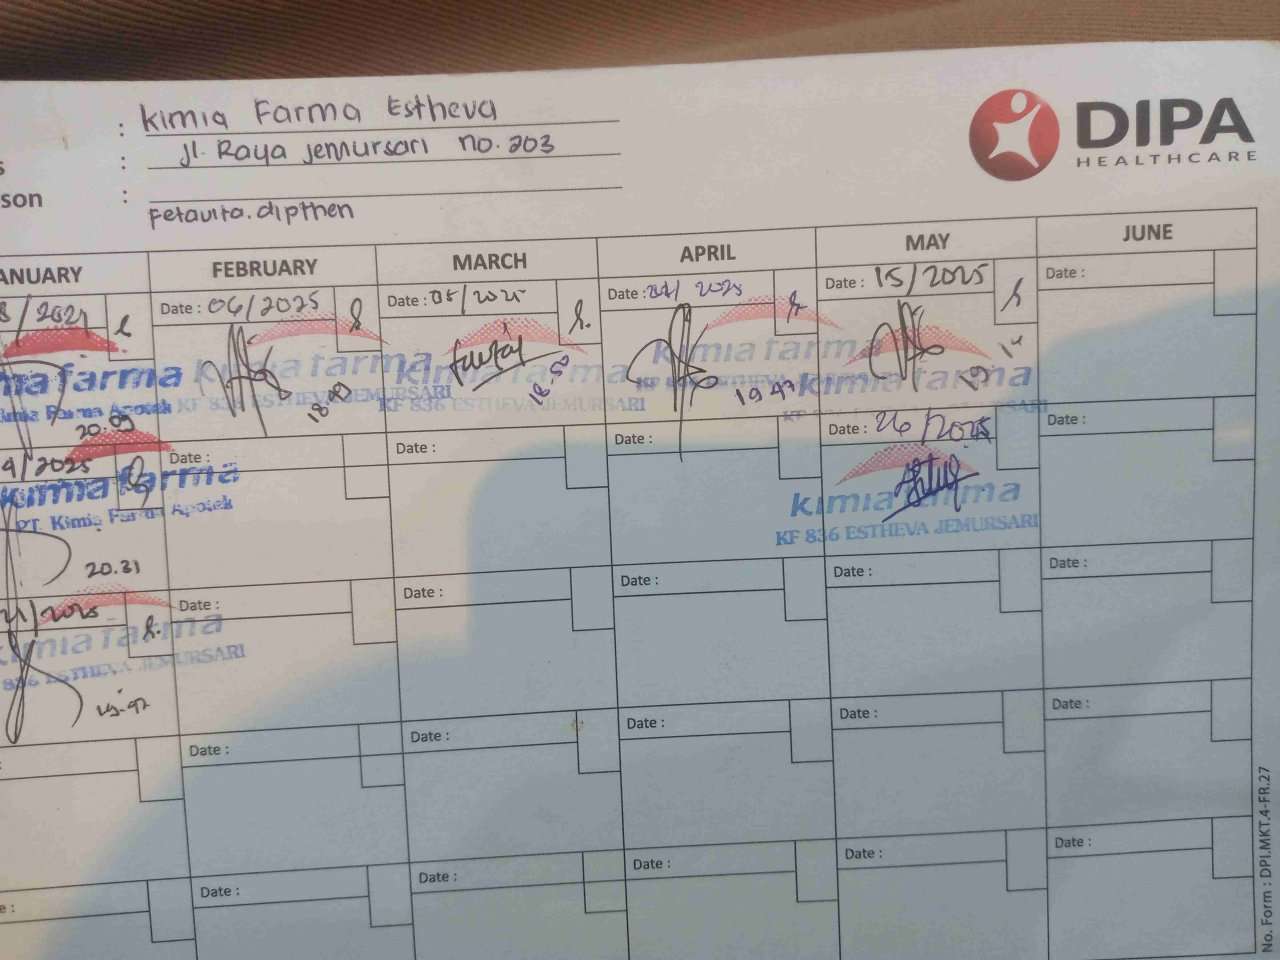 : Kimia Farma Estheva
: Jl. Raya Jemursari no. 203
son :
Fetavita.dipthen
DIPA
HEALTHCARE
ANUARY FEBRUARY MARCH APRIL MAY JUNE
Date : 06/2025
Date : 05/2025
Date : 2025
Date : 15/2025
Date :
kimia farma
Kimia Farma Apotek
20.09
kimia farma
KF 836 ESTHEVA JEMURSARI
18.49
kimia farma
KF 836 ESTHEVA JEMURSARI
18.50
kimia farma
KF 836
19 47
kimia farma
JEMURSARI
19 14
/2025
Date :
Date :
Date :
Date : 26/2025
Date :
kimia farma
PT. Kimia Farma Apotek
20.31
kimia farma
KF 836 ESTHEVA JEMURSARI
21/2025
Date :
Date :
Date :
Date :
Date :
kimia farma
836 ESTHEVA JEMURSARI
Date :
Date :
Date :
Date :
Date :
Date :
Date :
Date :
Date :
Date :
No. Form : DPI.MKT.4-FR.27